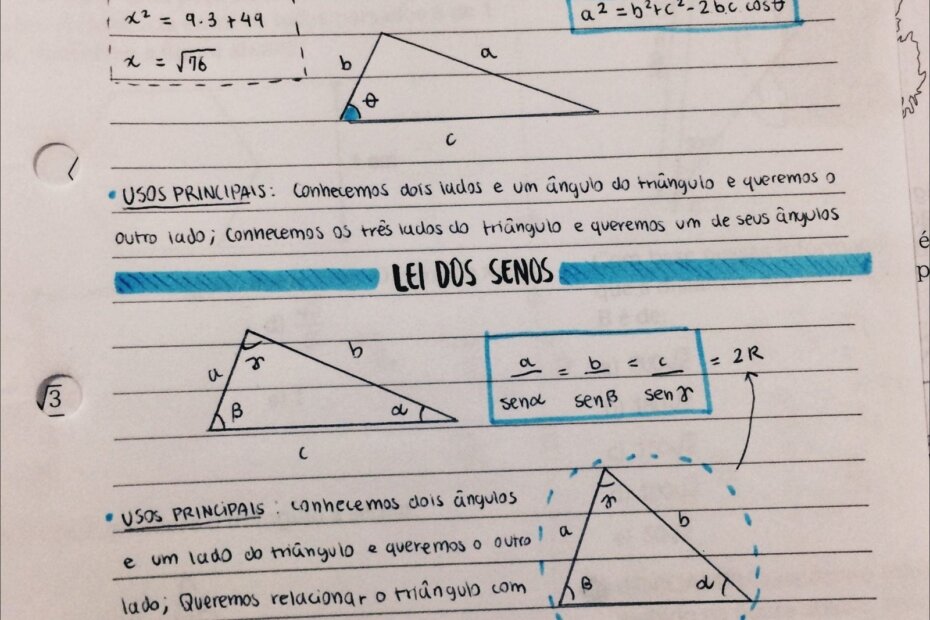 x² = 9.3 + 49
x = √76
a² = b² + c² - 2bc cosθ
b
a
θ
c
• USOS PRINCIPAIS: Conhecemos dois lados e um ângulo do triângulo e queremos o
outro lado; Conhecemos os três lados do triângulo e queremos um de seus ângulos
LEI DOS SENOS
a
γ
b
β
α
c
a/senα = b/senβ = c/senγ = 2R
√3
• USOS PRINCIPAIS: conhecemos dois ângulos
e um lado do triângulo e queremos o outro
lado; Queremos relacionar o triângulo com
γ
a
b
β
α
é
p